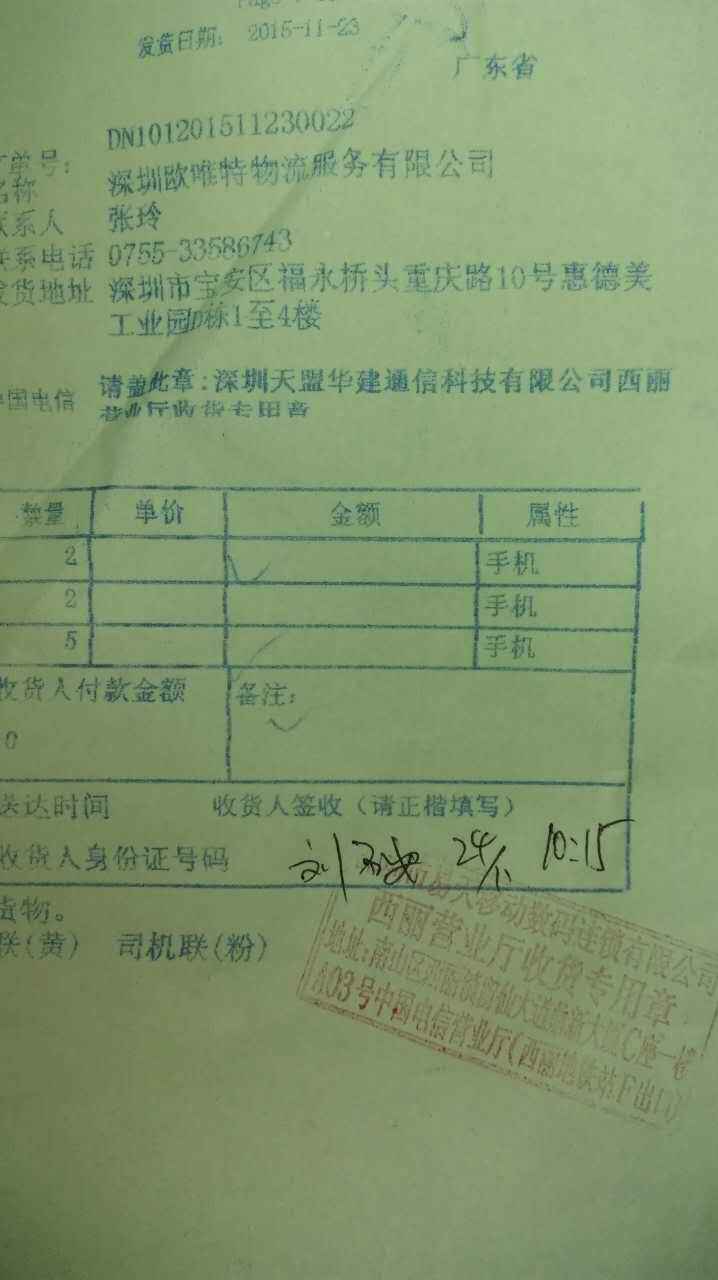 发货日期: 2015-11-23
广东省
单号: DN101201511230022
名称 深圳欧唯特物流服务有限公司
联系人 张玲
联系电话 0755-33586743
发货地址 深圳市宝安区福永桥头重庆路10号惠德美
工业园D栋1至4楼
中国电信 请盖此章:深圳天盟华建通信科技有限公司西丽
营业厅收货专用章
数量 单价 金额 属性
2 手机
2 手机
5 手机
收货人付款金额 备注:
0
送达时间 收货人签收（请正楷填写）
收货人身份证号码
刘 24/ 10:15
货物。
联(黄) 司机联(粉)
移动数码连锁有限公司
西丽营业厅收货专用章
地址:南山区西丽镇留仙大道 新大厦C座一楼
A03号中国电信营业厅(西丽地铁站F出口)